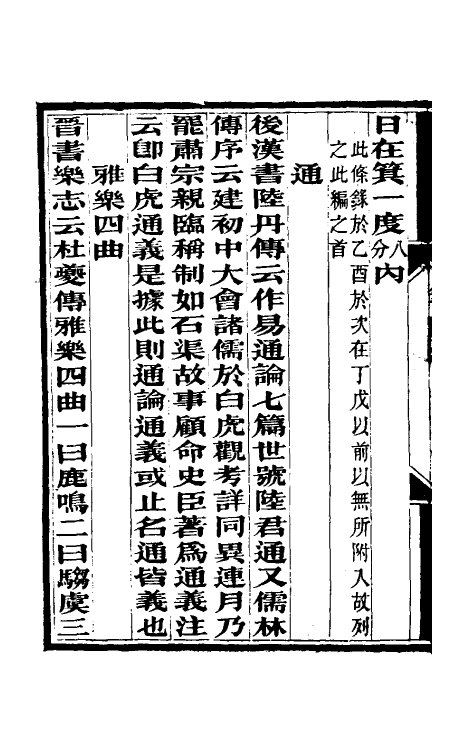 日在箕一度八分內
此條錄於乙酉於次在丁戊以前以無所附入故列
之此編之首
通
後漢書陸丹傳云作易通論七篇世號陸君通又儒林
傳序云建初中大會諸儒於白虎觀考詳同異連月乃
罷肅宗親臨稱制如石渠故事顧命史臣著爲通義注
云卽白虎通義是據此則通論通義或止名通皆義也
雅樂四曲
晉書樂志云杜夔傳雅樂四曲一曰鹿鳴二曰騶虞三